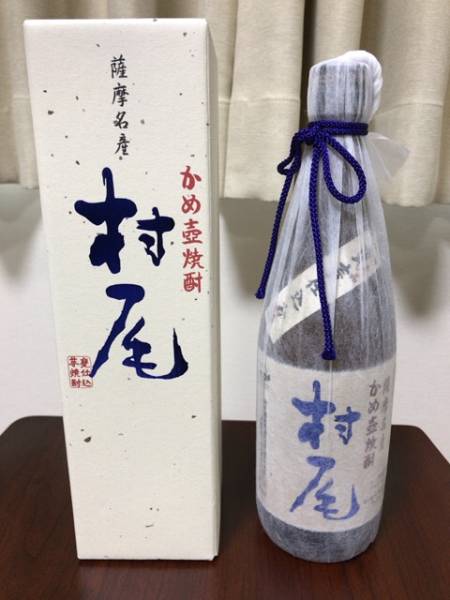 薩摩名産
かめ壺焼酎
村尾
甕仕込
芋焼酎
薩摩名産
かめ壺焼酎
村尾